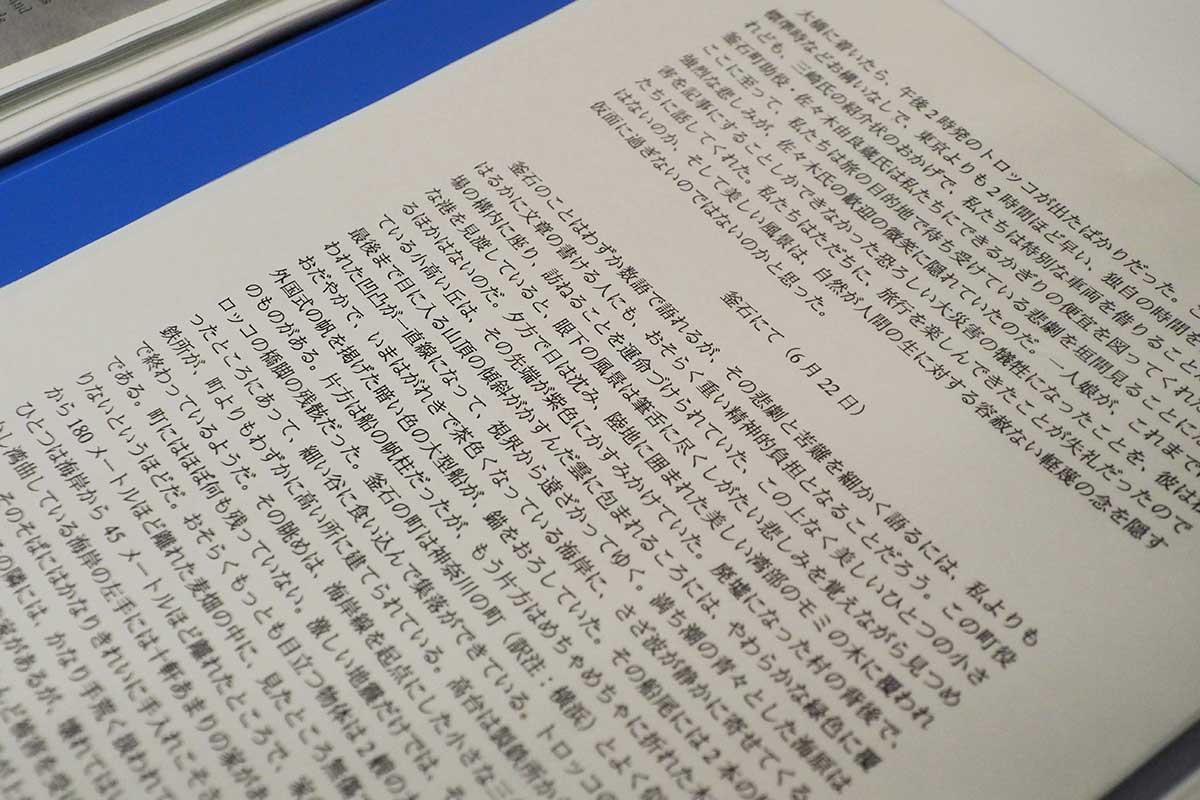 大橋に着いたら、午後2時発のトロッコが出たばかりだった。
標準時などお構いなしで、東京よりも2時間ほど早い、独自の時間を
れども、三崎氏の紹介状のおかげで、私たちは特別な車両を借りること
釜石町助役・佐々木由良蔵氏は私たちにできるかぎりの便宜を図ってくれた
ここに至って、私たちは旅の目的地で待ち受けている悲劇を垣間見ることに
強烈な悲しみが、佐々木氏の歓迎の微笑に隠れていたのだ。一人娘が、これまで
害を記事にすることしかできなかった恐ろしい大災害の犠牲になったことを、彼は
たちに話してくれた。私たちはただちに、旅行を楽しんできたことが失礼だったので
はないのか、そして美しい風景は、自然が人間の生に対する容赦ない軽蔑の念を隠す
仮面に過ぎないのではないのかと思った。
釜石にて（6月22日）
釜石のことはわずか数語で語れるが、その悲劇と苦難を細かく語るには、私よりも
はるかに文章の書ける人にも、おそらく重い精神的負担となることだろう。この町役
場の構内に座り、訪ねることを運命づけられていた、この上なく美しいひとつの小さ
な港を見渡していると、眼下の風景は筆舌に尽くしがたい悲しみを覚えながら見つめ
るほかはないのだ。夕方で日は沈み、陸地に囲まれた美しい湾部のモミの木に覆われ
ている小高い丘は、その先端が紫色にかすみかけていた。廃墟になった村の背後で、
最後まで目に入る山頂の傾斜がかすんだ雲に包まれるころには、やわらかな緑色に覆
われた凹凸が一直線になって、視界から遠ざかってゆく。満ち潮の青々とした海原は
おだやかで、いまはがれきで茶色くなっている海岸に、さざ波が静かに寄せてくる
外国式の帆を掲げた暗い色の大型船が、錨をおろしていた。その船尾には2本の
のものがある。片方は船の帆柱だったが、もう片方はめちゃめちゃに折れた木
ロッコの橋脚の残骸だった。釜石の町は神奈川の町（訳注：横浜）とよく似
ったところにあって、細い谷に食い込んで集落ができている。トロッコの
鉄所が、町よりもわずかに高い所に建てられている。高台は製鉄所か
で終わっているようだ。その眺めは、海岸線を起点にした小さな三
である。町にはほぼ何も残っていない。激しい地震だけでは、そ
りないというほどだ。おそらくもっとも目立つ物体は2艘の大
から180メートルほど離れた麦畑の中に、見たところ無傷
ひとつは海岸から45メートルほど離れたところで、家
し湾曲している海岸の左手には十軒あまりの家があ
そのそばにはかなりきれいに手入れこそさ
の隣には、かなり手荒く扱われて
家があるが、壊れてはい
ど被害を受け